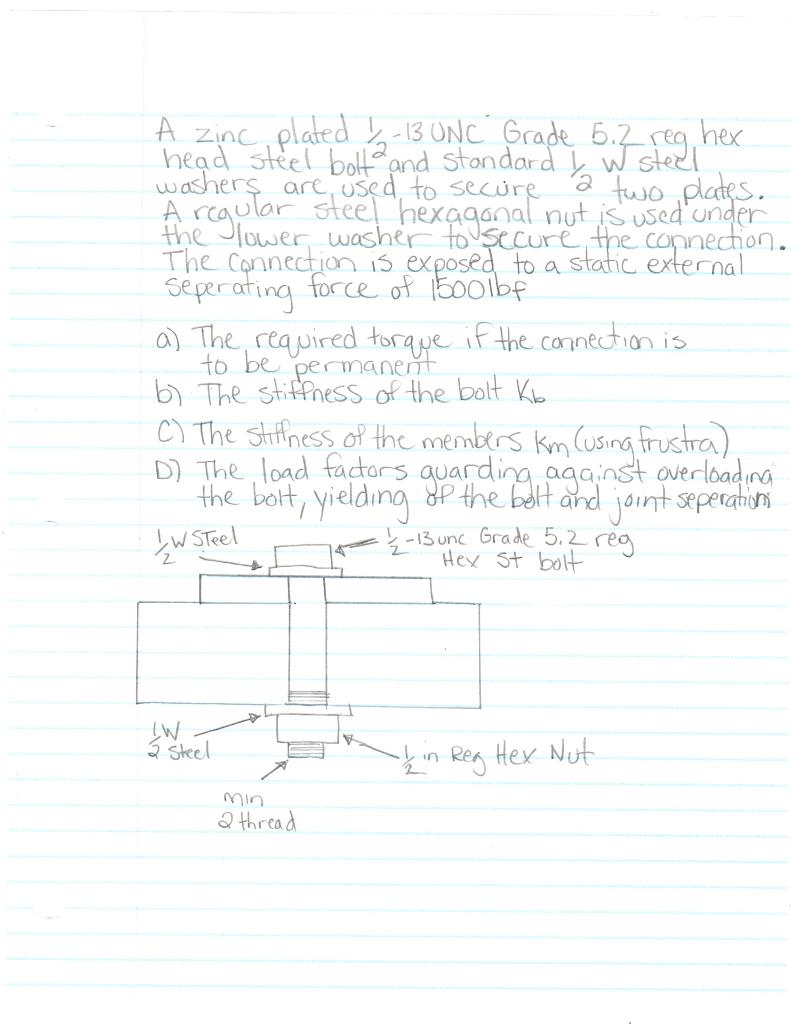 A zinc plated 1/2-13 UNC Grade 5.2 reg hex
head steel bolt and standard 1/2 W steel
washers are used to secure two plates.
A regular steel hexagonal nut is used under
the lower washer to secure the connection.
The connection is exposed to a static external
seperating force of 1500lbf
a) The required torque if the connection is
to be permanent
b) The stiffness of the bolt Kb
C) The stiffness of the members Km (using frustra)
D) The load factors guarding against overloading
the bolt, yielding of the bolt and joint seperation
1/2 W STeel
1/2-13unc Grade 5.2 reg
Hex St bolt
1/2 W
Steel
1/2 in Reg Hex Nut
min
2 thread